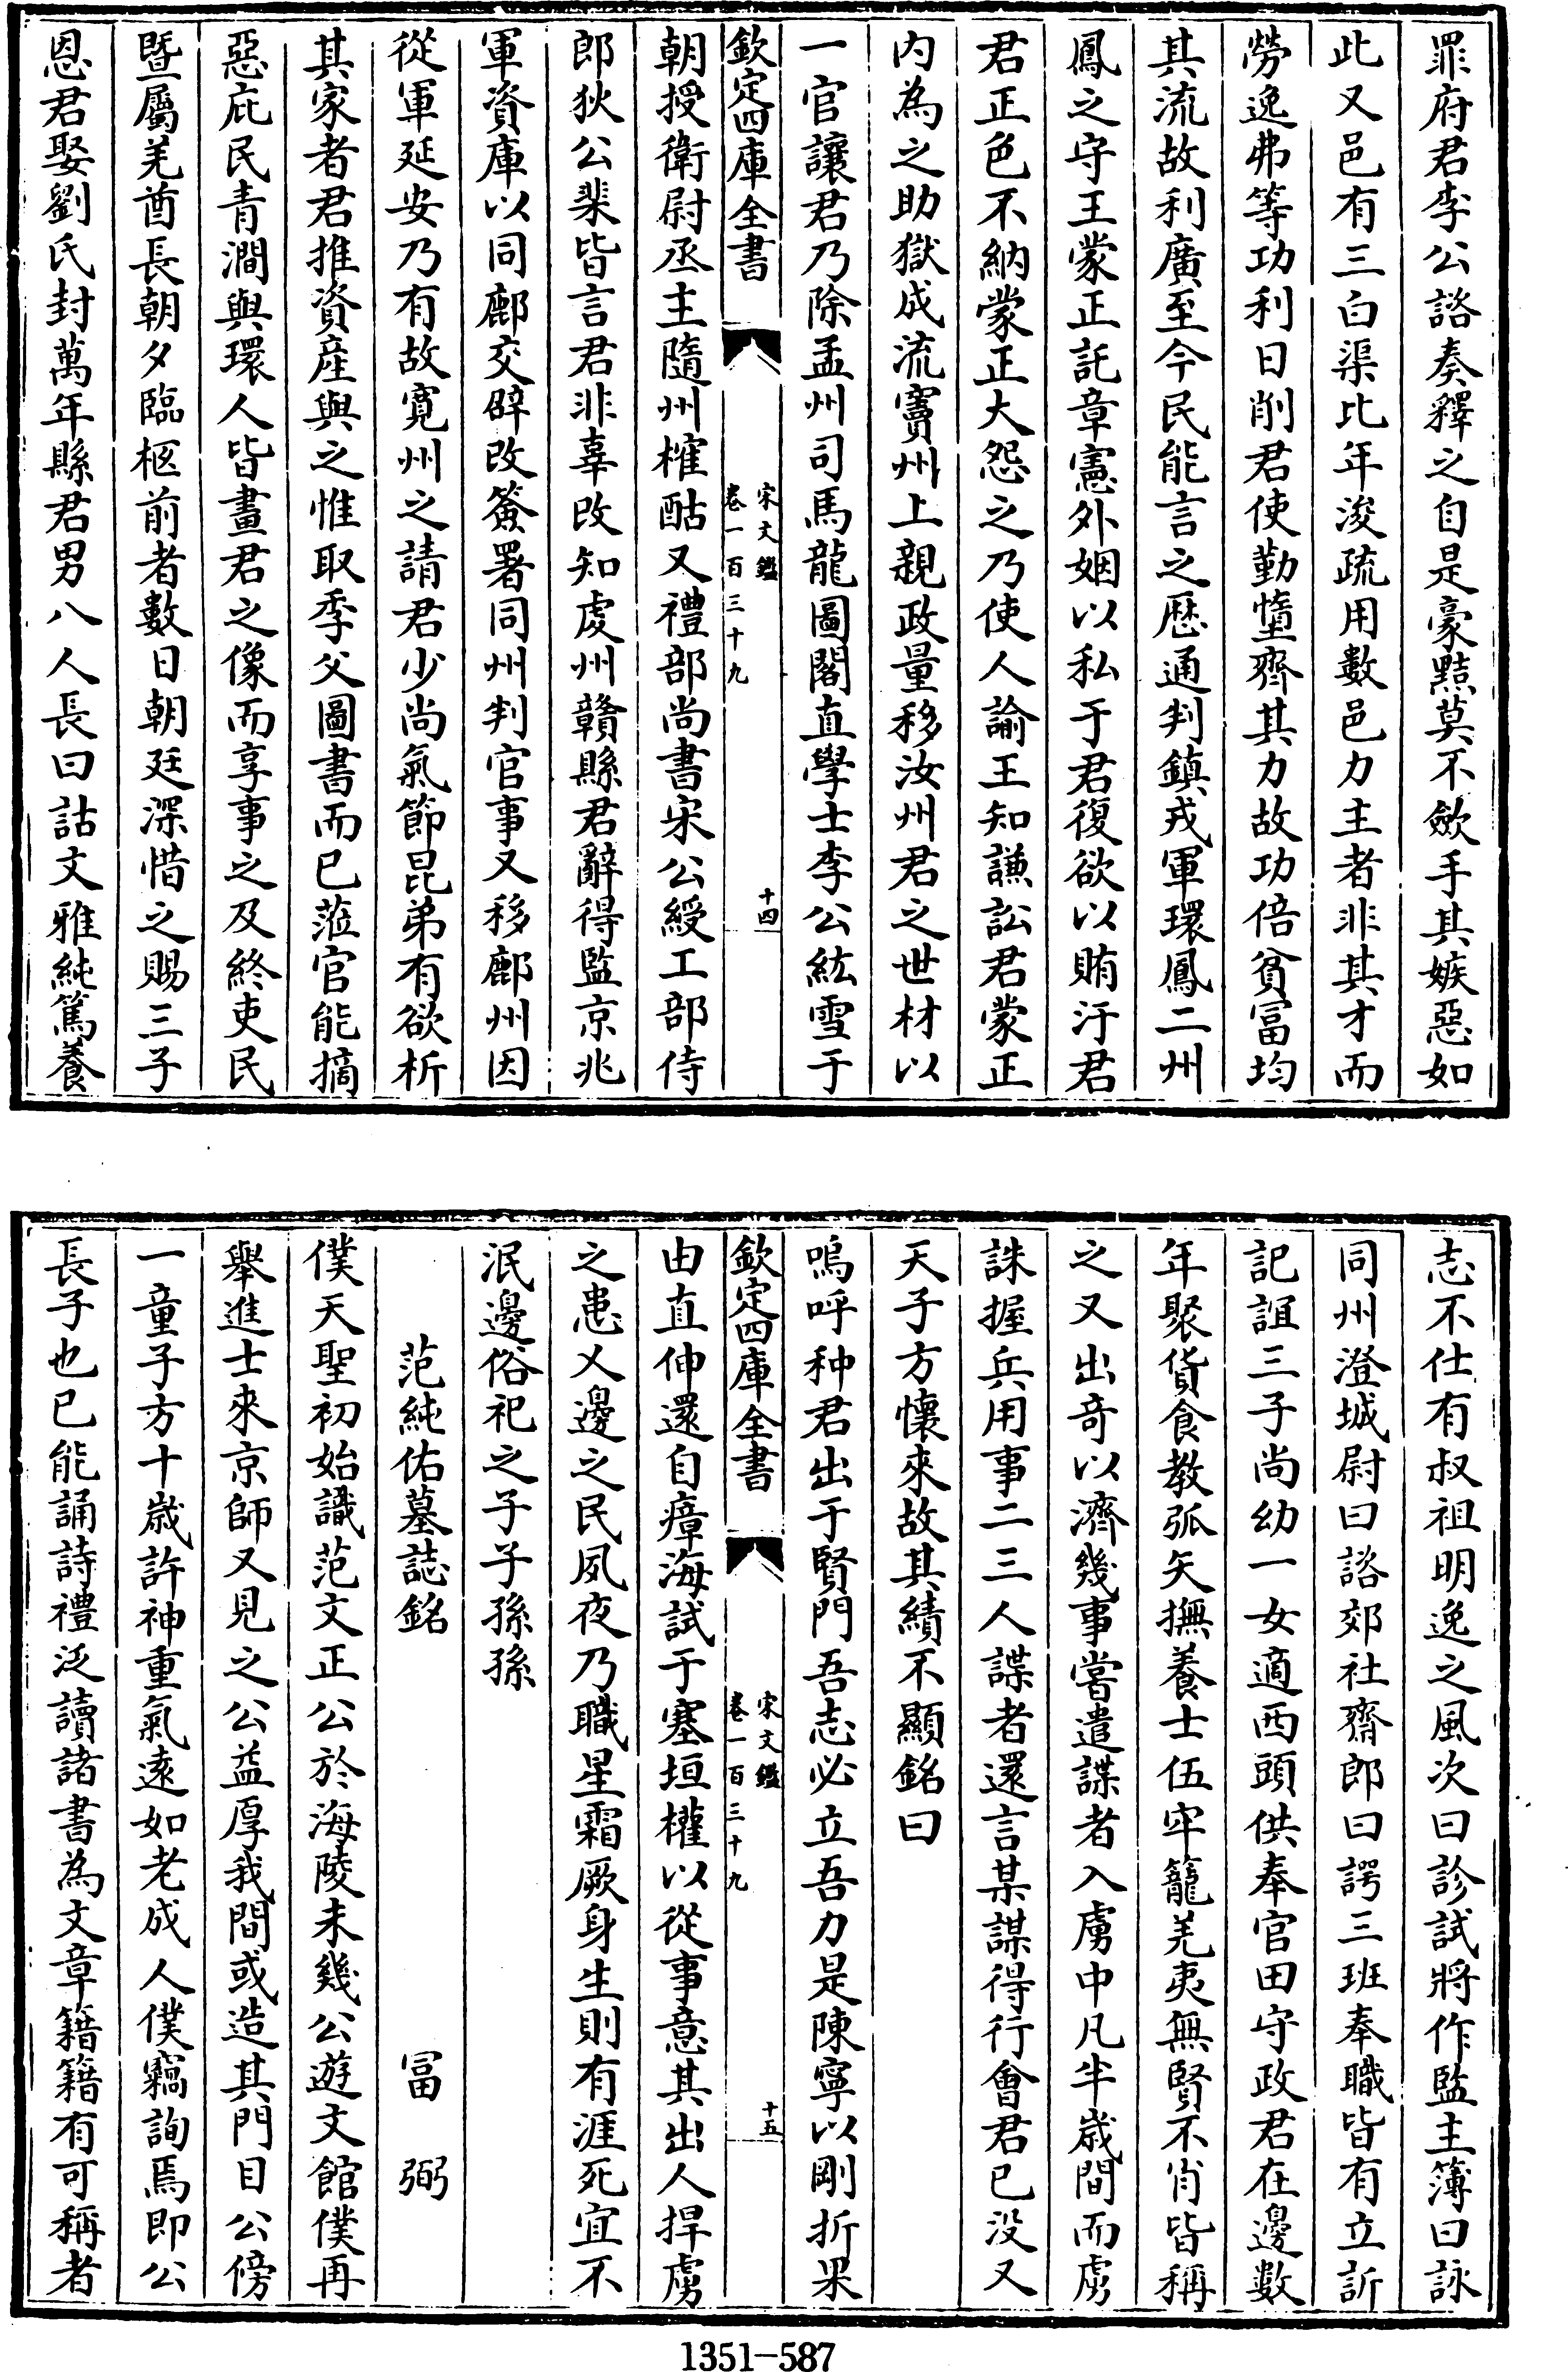 罪府君李公諮奏釋之自是豪黠莫不斂手其嫉惡如
此又邑有三白渠比年浚疏用數邑力主者非其才而
勞逸弗等功利日削君使勤墮齊其力故功倍貧富均
其流故利廣至今民能言之歴通判鎮戎軍環鳳二州
鳳之守王蒙正託章憲外姻以私于君復欲以賄汙君
君正色不納蒙正大怨之乃使人諭王知謙訟君蒙正
内為之助獄成流竇州上親政量移汝州君之世材以
一官讓君乃除孟州司馬龍圖閣直學士李公紘雪于
欽定四庫全書
宋文鑑
卷一百三十九
十四
朝授衛尉丞主隨州榷酤又禮部尚書宋公綬工部侍
郎狄公棐皆言君非辜改知虔州贛縣君辭得監京兆
軍資庫以同鄜交辟改簽署同州判官事又移鄜州因
從軍延安乃有故寛州之請君少尚氣節昆弟有欲析
其家者君推資産與之惟取季父圖書而已蒞官能摘
惡庇民青澗與環人皆畫君之像而享事之及終吏民
暨屬羌酋長朝夕臨柩前者數日朝廷深惜之賜三子
恩君娶劉氏封萬年縣君男八人長曰詁文雅純篤養
志不仕有叔祖明逸之風次曰診試將作監主簿曰詠
同州澄城尉曰諮郊社齋郎曰諤三班奉職皆有立訢
記誼三子尚幼一女適西頭供奉官田守政君在邊數
年聚貨食教弧矢撫養士伍牢籠羌夷無賢不肖皆稱
之又出奇以濟幾事嘗遣諜者入虜中凡半歳間而虜
誅握兵用事二三人諜者還言某謀得行會君已没又
天子方懷來故其績不顯銘曰
嗚呼种君出于賢門吾志必立吾力是陳寧以剛折果
欽定四庫全書
宋文鑑
卷一百三十九
十五
由直伸還自瘴海試于塞垣權以從事意其出人捍虜
之患乂邊之民夙夜乃職星霜厥身生則有涯死宜不
泯邊俗祀之子子孫孫
范純佑墓誌銘　富弼
僕天聖初始識范文正公於海陵未幾公遊文館僕再
舉進士來京師又見之公益厚我間或造其門目公傍
一童子方十歳許神重氣遠如老成人僕竊詢焉即公
長子也已能誦詩禮泛讀諸書為文章籍籍有可稱者
1351-587